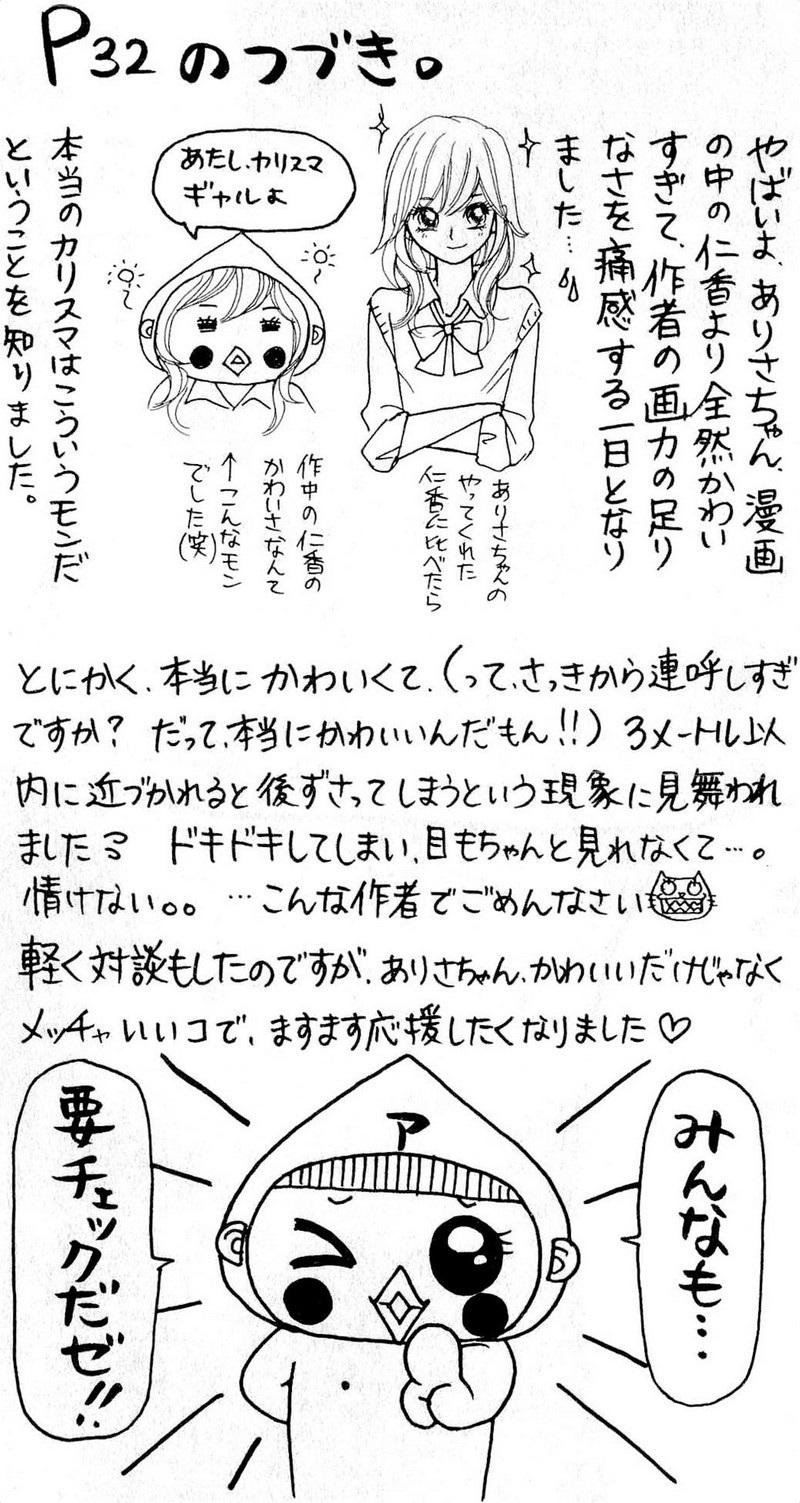 P32のつづき。
やばいよ、ありさちゃん、漫画
の中の仁香より全然かわい
すぎて、作者の画力の足り
なさを痛感する一日となり
ました…
ありさちゃんの
やってくれた
仁香に比べたら
あたし、カリスマ
ギャルよ
作中の仁香の
かわいさなんて
↑こんなモン
でした(笑)
本当のカリスマはこういうモンだ
ということを知りました。
とにかく、本当にかわいくて、(って、さっきから連呼しすぎ
ですか? だって、本当にかわいいんだもん!!) 3メートル以
内に近づかれると後ずさってしまうという現象に見舞われ
ました ドキドキしてしまい、目もちゃんと見れなくて…。
情けない。。 …こんな作者でごめんなさい
軽く対談もしたのですが、ありさちゃん、かわいいだけじゃなく
メッチャいいコで、ますます応援したくなりました♡
みんなも…
ア
要チェックだゼ!!